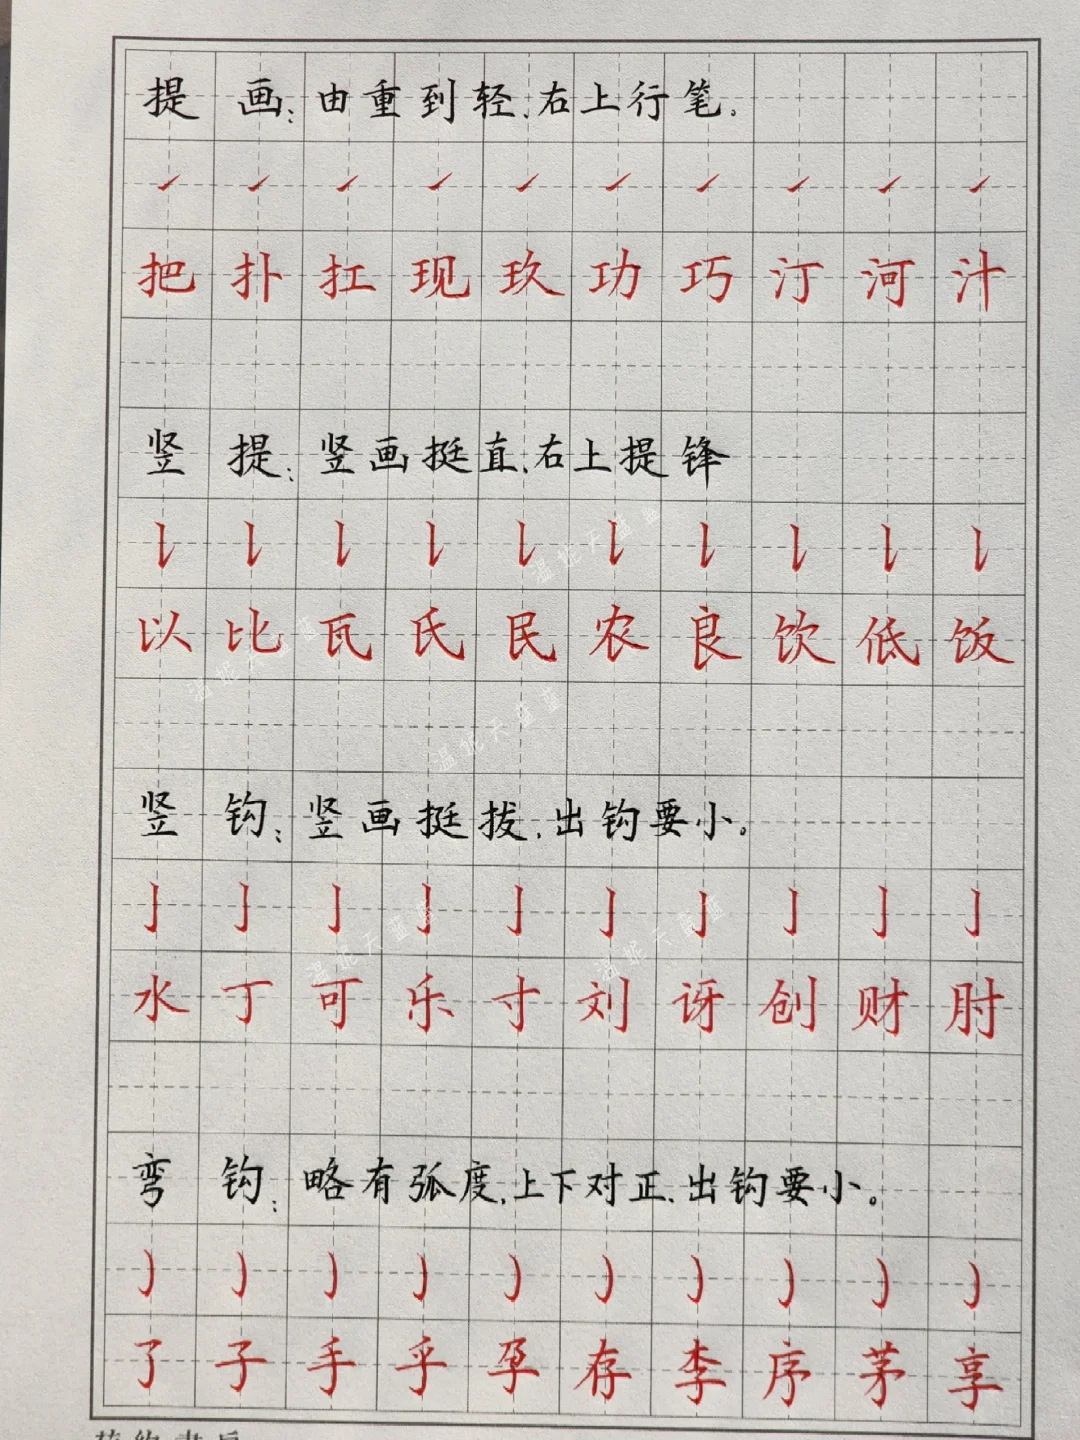 提画:由重到轻、右上行笔。
㇀㇀㇀㇀㇀㇀㇀㇀㇀㇀
把扑扛现玖功巧汀河汁
竖提:竖画挺直、右上提锋
𠄌𠄌𠄌𠄌𠄌𠄌𠄌𠄌𠄌𠄌
以比瓦氏民农良饮低饭
竖钩:竖画挺拔、出钩要小。
亅亅亅亅亅亅亅亅亅亅
水丁可乐寸刘讶创财肘
弯钩:略有弧度、上下对正、出钩要小。
㇁㇁㇁㇁㇁㇁㇁㇁㇁㇁
了子手乎孕存李序茅享
温妮天蓝蓝
温妮天蓝蓝
温妮天蓝蓝
温妮天蓝蓝
温妮天蓝蓝